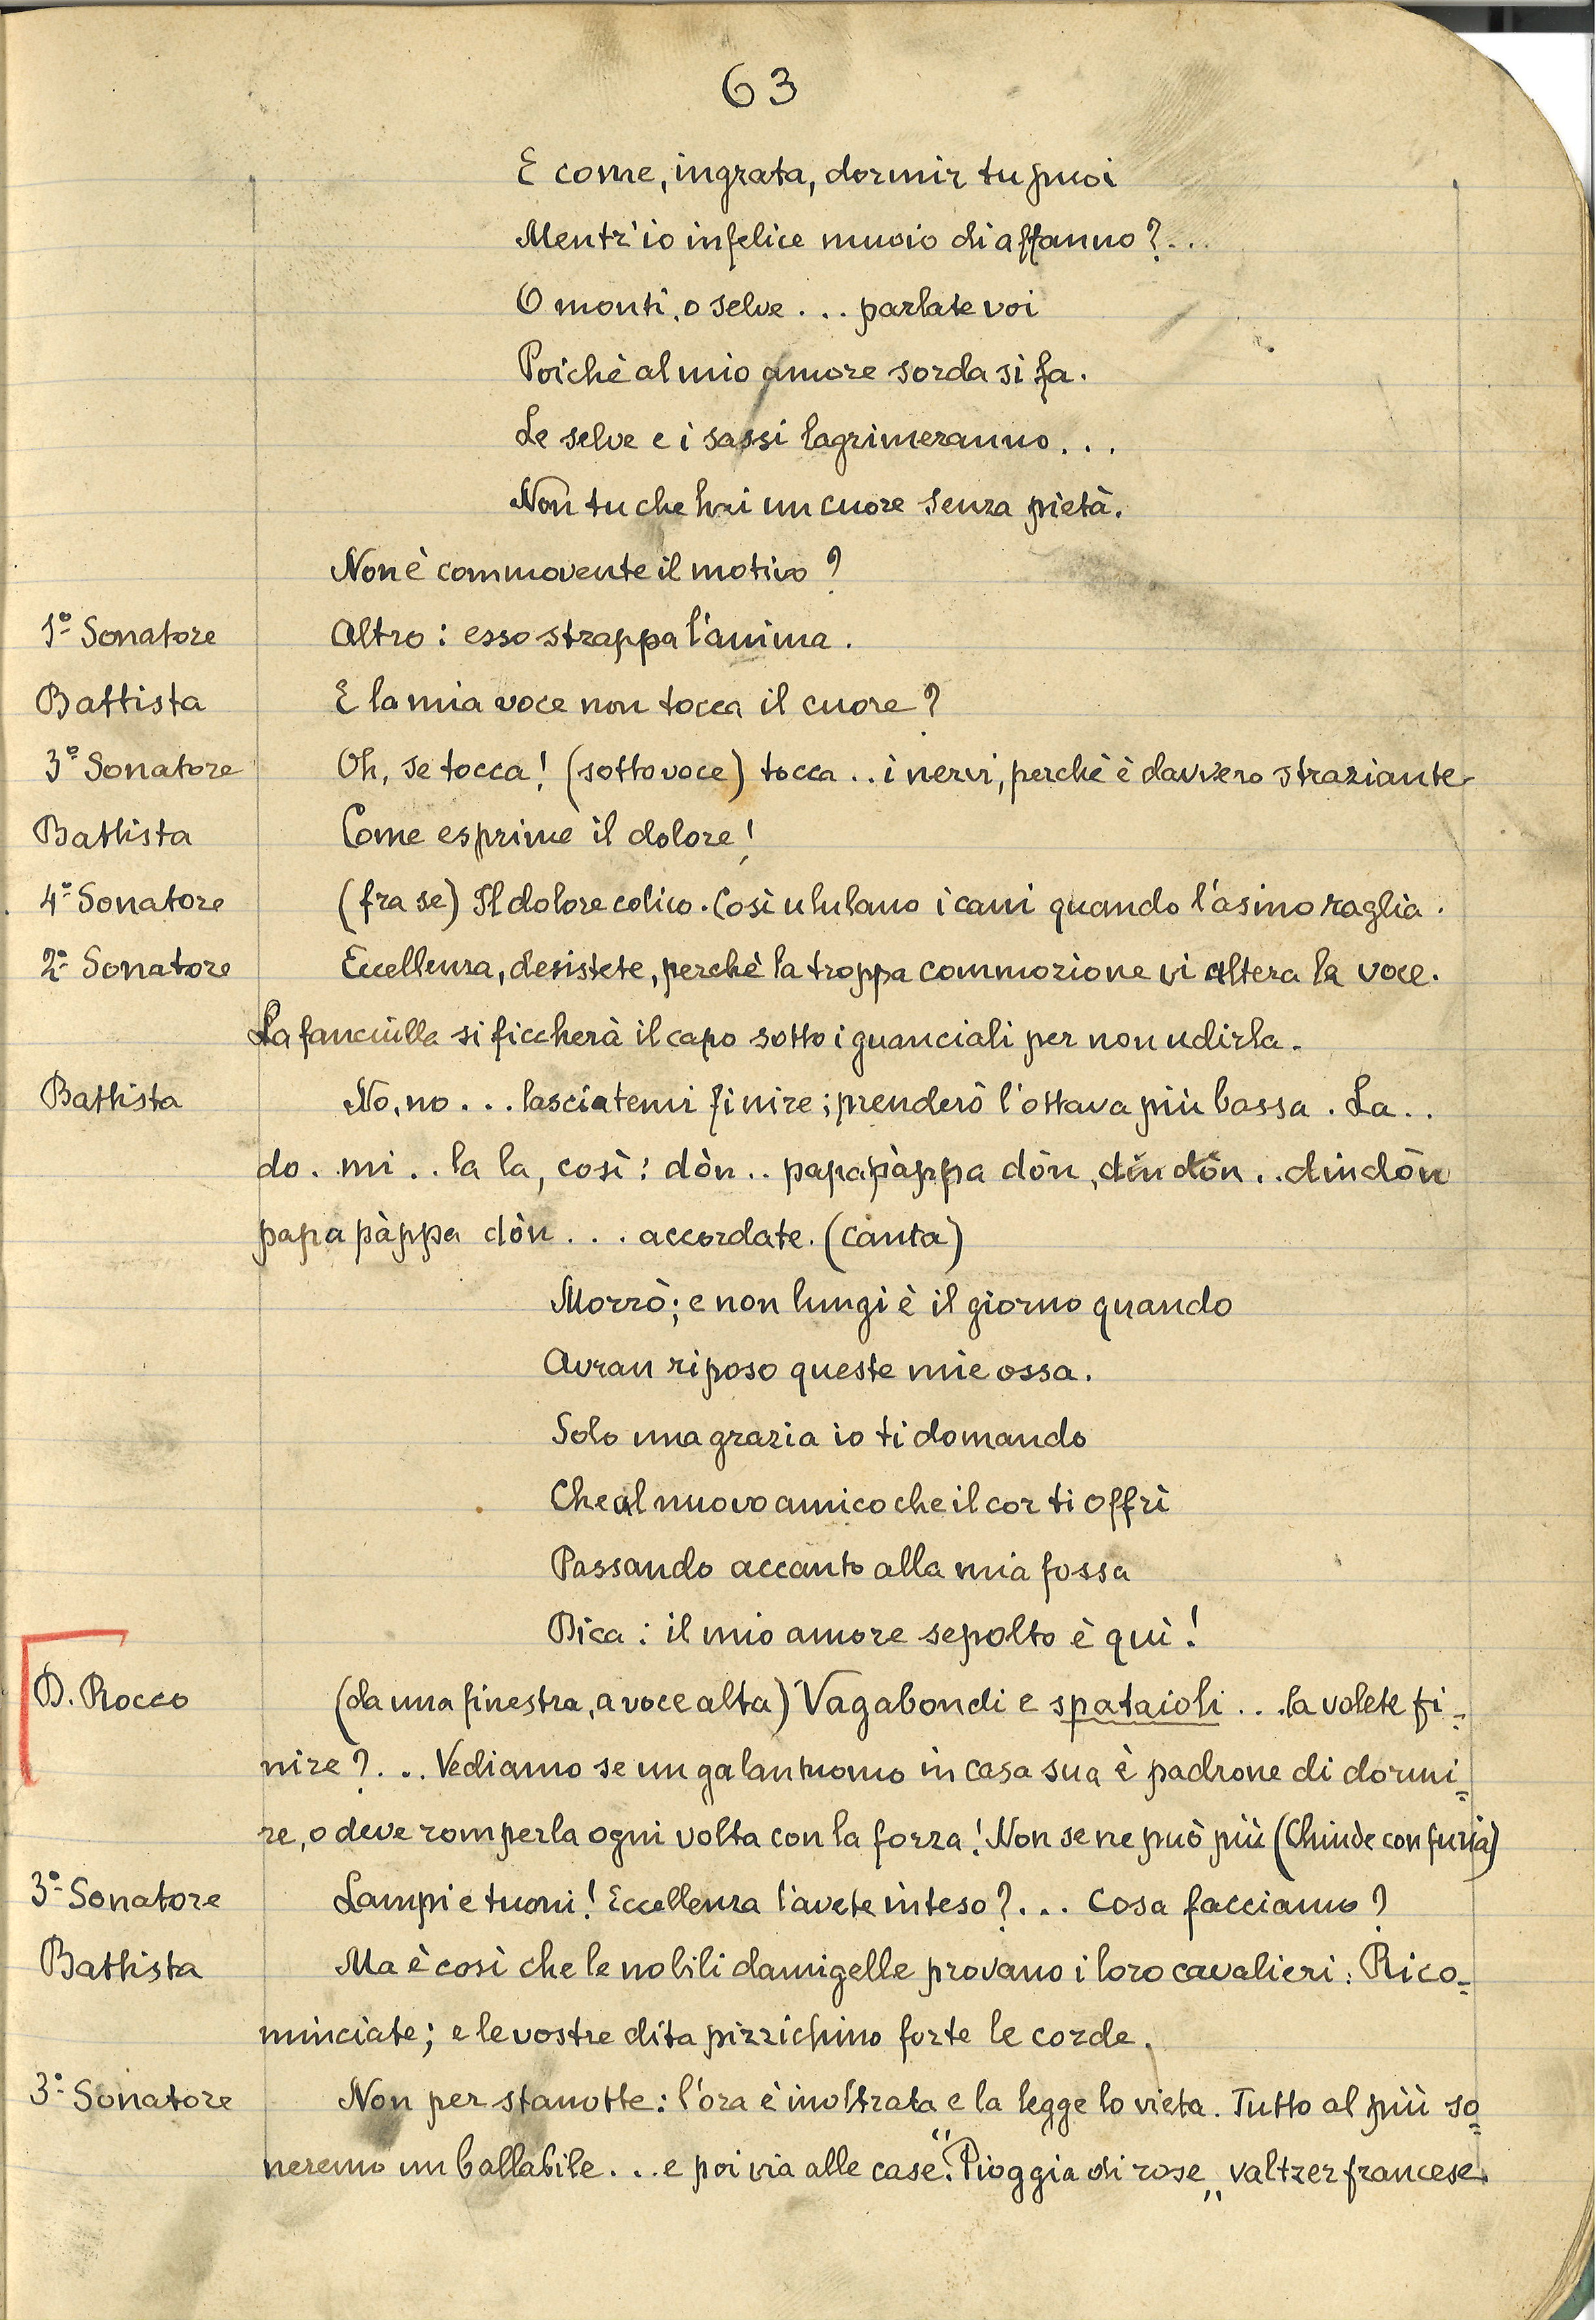 63
E come, ingrata, dormir tu puoi
Mentr'io infelice muoio di affanno?...
O monti, o selve... parlate voi
Poichè al mio amore sorda si fa.
Le selve e i sassi lagrimeranno...
Non tu che hai un cuore senza pietà.
Non è commovente il motivo?
1º Sonatore Altro: esso strappa l'anima.
Battista E la mia voce non tocca il cuore?
3º Sonatore Oh, se tocca! (sottovoce) tocca.. i nervi, perchè è davvero straziante
Battista Come esprime il dolore!
4º Sonatore (fra se) Il dolore colico. Così ululano i cani quando l'asino raglia.
2º Sonatore Eccellenza, desistete, perchè la troppa commozione vi altera la voce.
La fanciulla si ficcherà il capo sotto i guanciali per non udirla.
Battista No, no... lasciatemi finire; prenderò l'ottava più bassa. La..
do.. mi.. la la, così: dòn.. papapàppa dòn, din dòn.. dindòn
papapàppa dòn... accordate. (canta)
Morrò; e non lungi è il giorno quando
Avran riposo queste mie ossa.
Solo una grazia io ti domando
Che al nuovo amico che il cor ti offrì
Passando accanto alla mia fossa
Dica: il mio amore sepolto è quì!
D. Rocco (da una finestra, a voce alta) Vagabondi e spataioli... la volete fi-
nire?... Vediamo se un galantuomo in casa sua è padrone di dormi=
re, o deve romperla ogni volta con la forza! Non se ne può più (Chiude con furia)
3º Sonatore Lampi e tuoni! Eccellenza l'avete inteso?... Cosa facciamo?
Battista Ma è così che le nobili damigelle provano i loro cavalieri: Rico=
minciate; e le vostre dita pizzichino forte le corde.
3º Sonatore Non per stanotte: l'ora è inoltrata e la legge lo vieta. Tutto al più so=
neremo un ballabile... e poi via alle case. "Pioggia di rose„ valtzer francese.